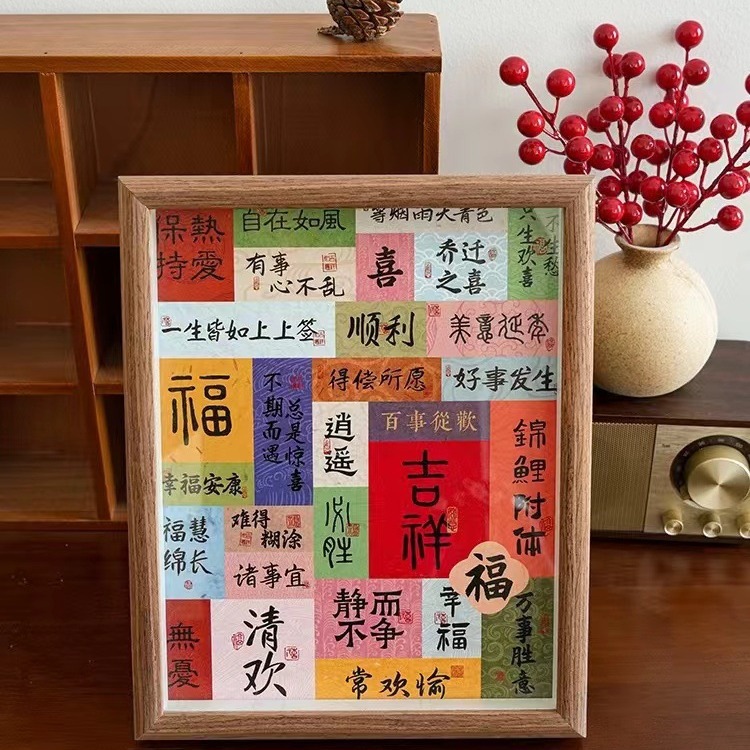 保持
熱愛
自在如風
等烟雨天青色
只生欢喜
不生愁
有事
心不乱
喜
乔迁
之喜
一生皆如上上签
顺利
美意延年
福
不期而遇
总是惊喜
得偿所愿
好事发生
逍遥
百事從歡
吉祥
錦鯉附体
幸福安康
必胜
福慧
绵长
难得
糊涂
诸事宜
福
無憂
清欢
静而
不争
幸福
万事胜意
常欢愉